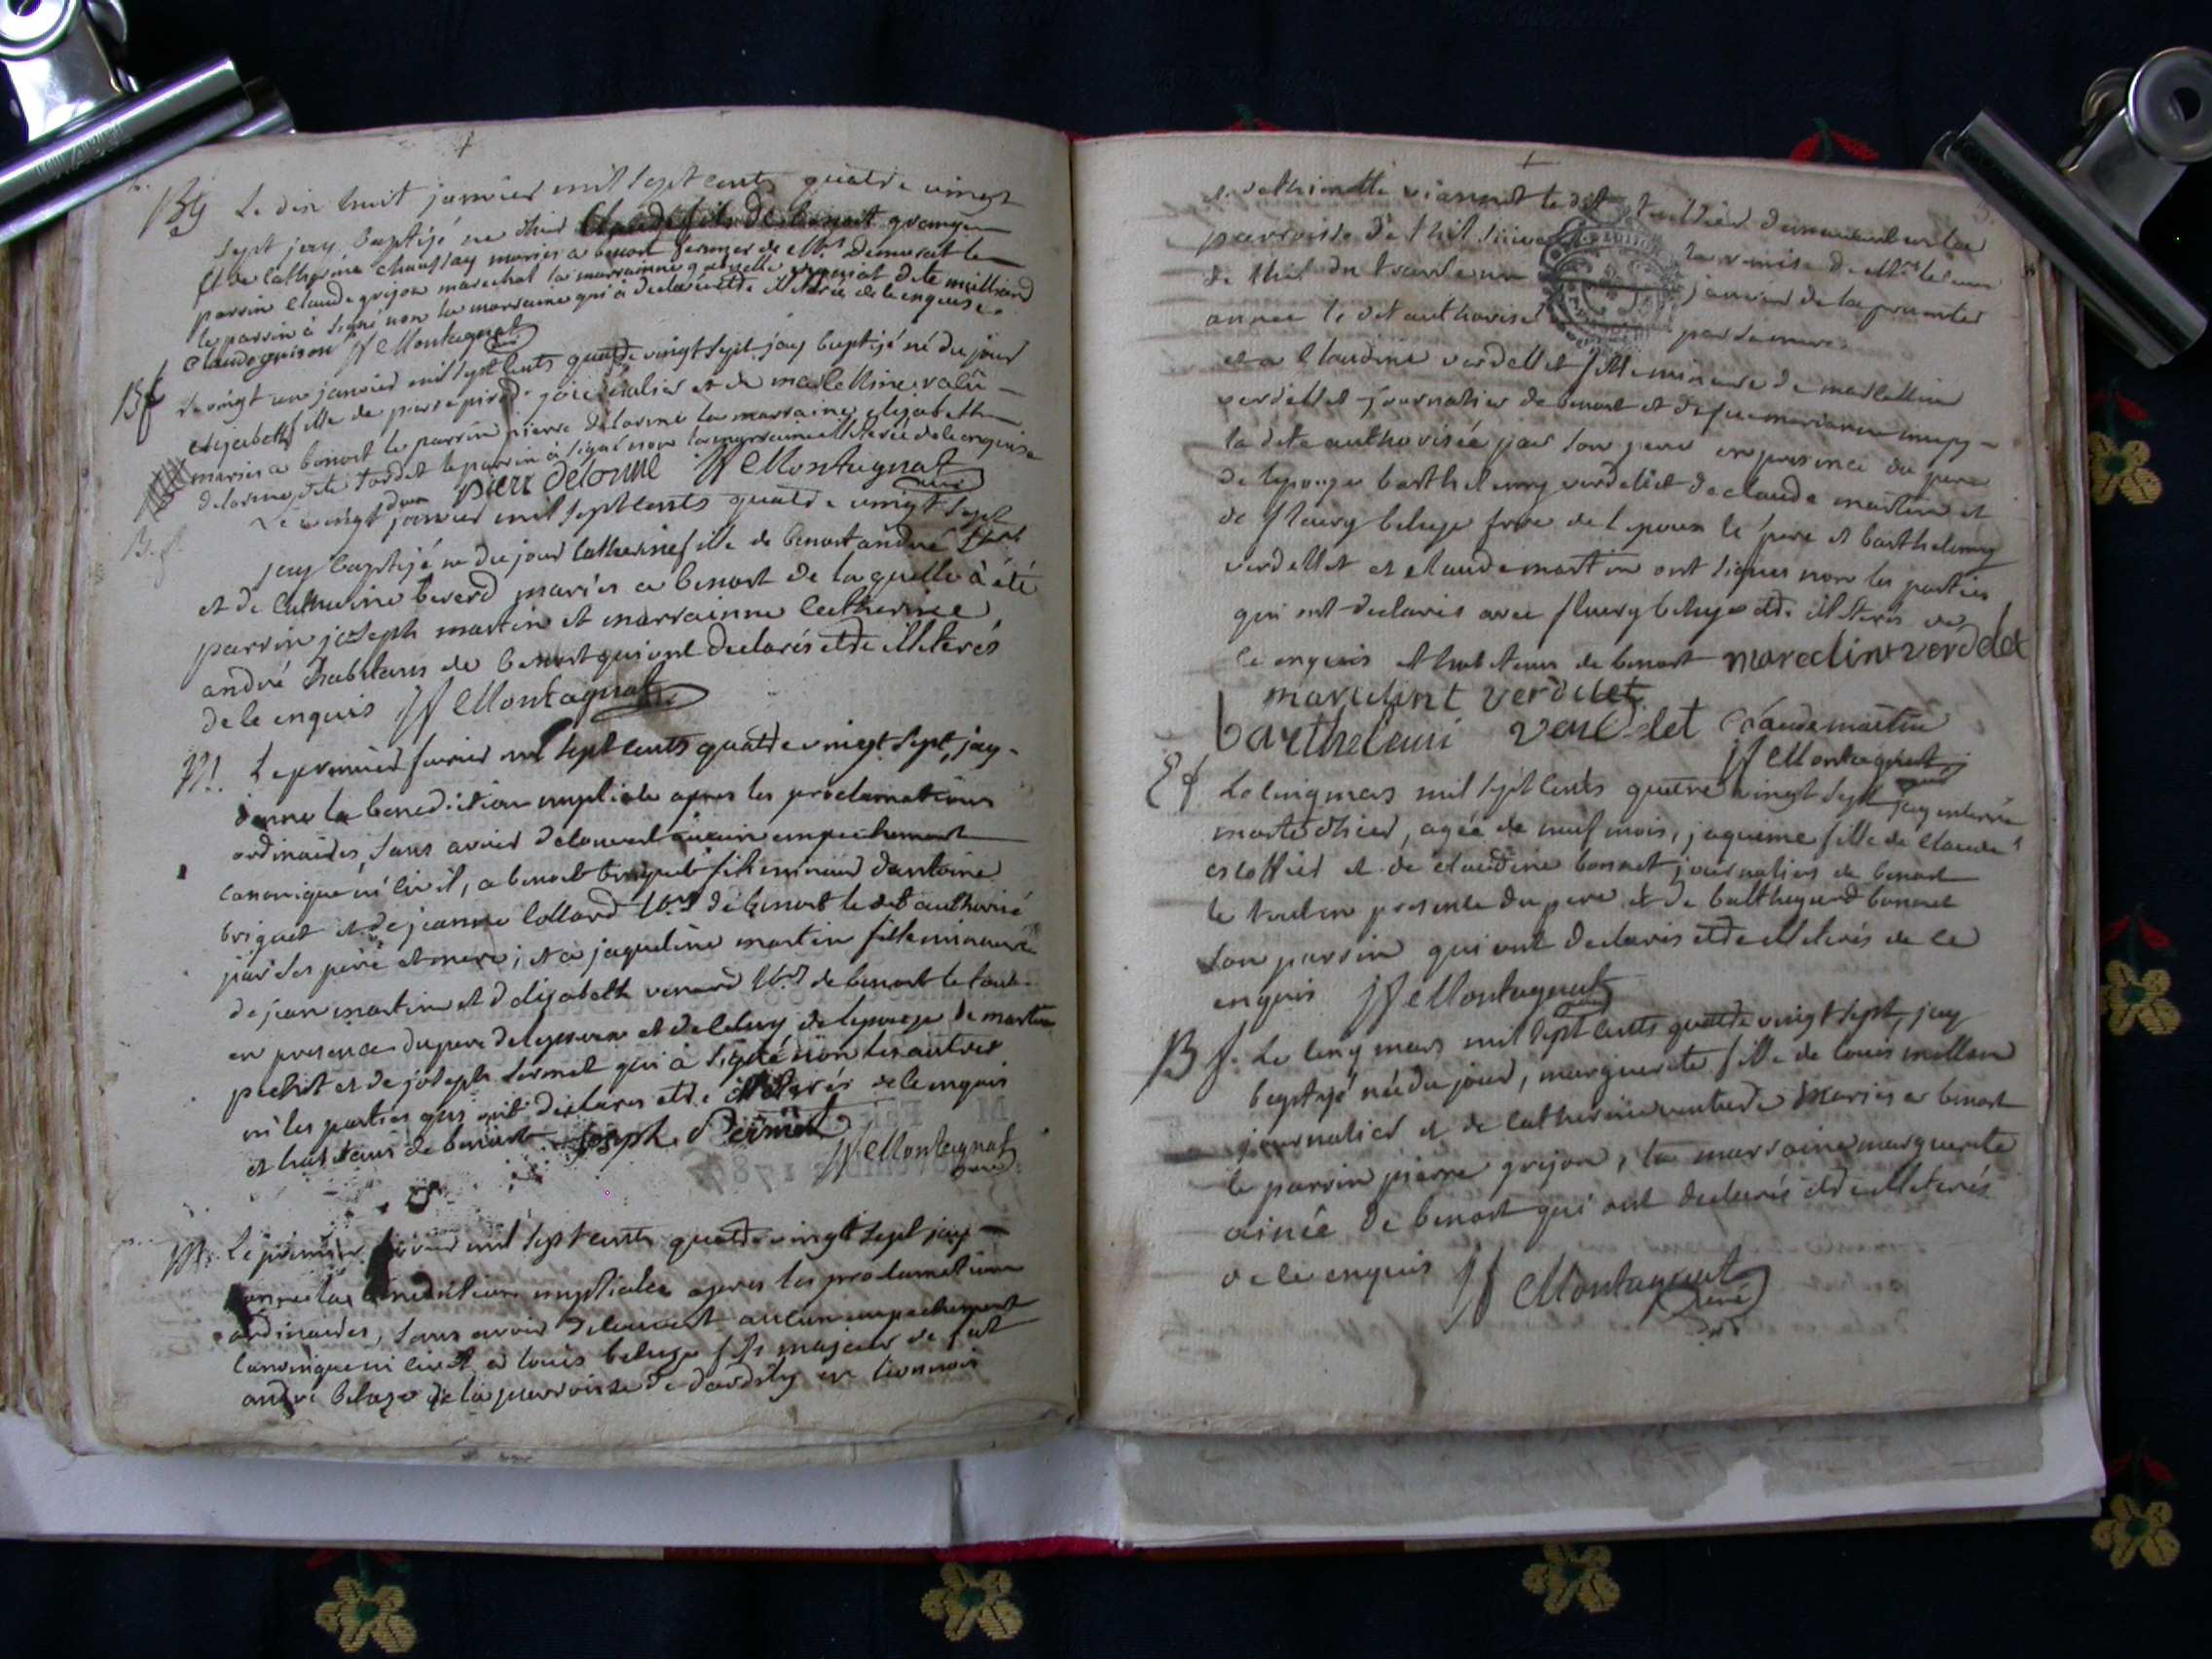 Bg Le dix huit janvier mil sept cents quatre vingt
sept jay baptizé ne d'hier Claude fils de benoit grange
et de Catherine Chaussay mariés a benost fermier de Mr Demurat le
parrin Claude grizon marechal la marrainne
le parrin à signé non la marraine qui à declaré etre illiterée de le enquise
Claude grison JF Montagnat curé
Bf Le vingt un janvier mil sept cents quatre vingt sept jay baptizé né du jour
elizabeth fille de pierre et de
mariés a benost le parrin pierre delorme la marraine elizabeth
delorme dite tardet le parrin à signé non la marraine illiterée de le enquise
pierr delorme JF Montagnat curé
B.f. Le vingt deux janvier mil sept cents quatre vingt sept
jay baptizé ne du jour Catherine fille de benost andré
et de Catherine beverd mariés a benost de la quelle à été
parrin joseph martin et marrainne Catherine
andré habitans de benost qui ont declarés etre illiterés
de le enquis JF Montagnat
M. Le premier fevrier mil sept cents quatre vingt sept jay
donné la benediction nuptiale apres les proclamations
ordinaires, sans avoir decouvert aucun empechement
canonique ni civil, a benoit briquet fils mineur dantoine
briquet et de jeanne Collard de benost le dit authorisé
par ses pere et mere; et a jaqueline martin fille mineure
de jean martin et d elizabeth venard de benost le tout
en presence du pere de lepoux et de celuy de lepouze de martin
pichet et de joseph permet qui à signé non les autres
ni les parties qui ont declarés etre illiterés de le enquis
et habitans de benost Joseph Permet
JF Montagnat curé
M. Le premier fevrier mil sept cents quatre vingt sept jay
donné la benediction nuptiale apres les proclamations
ordinaires, sans avoir decouvert aucun empechement
canonique ni civil a louis beluze fils majeur de feu
andré beluze de la parroisse de dardilly en lionnois
et d'ethiennette viannet le dit demeurant en la
parroisse de thil
de thil du
janvier de la presente
année le dit authorisé par sa mere
et a Claudine verdellet fille mineure de marcellin
verdellet journalier de benost et de feue marianne
la dite authorisée par son pere en presence du pere
de lepouze barthelemy verdellet de claude martin et
de fleury beluze frere de l epoux le pere et barthelemy
verdellet et claude martin ont signés non les parties
qui ont declarés avec fleury beluze etre illiterés de
le enquis et habitans de benost marcelin verddet
marcelint verdelet
barthelemi verdelet Claude martin
JF Montagnat curé
Ef. Le cinq mars mil sept cents quatre vingt sept jay enterré
morte d'hier, agée de neuf mois, jaqueme fille de claude
escoffier et de claudine bonnet journaliers de benost
le tout en presence du pere et de balthazard bonnet
son parrin qui ont declarés etre illiterés de le
enquis JF Montagnat curé
B f. Le cinq mars mil sept cents quatre vingt sept, jay
baptizé née du jour, marguerite fille de louis
journalier et de Catherine mariés a benost
le parrin pierre grizon, la marraine marguerite
ainée de benost qui ont declarés etre illiterés
de le enquis JF Montagnat
curé